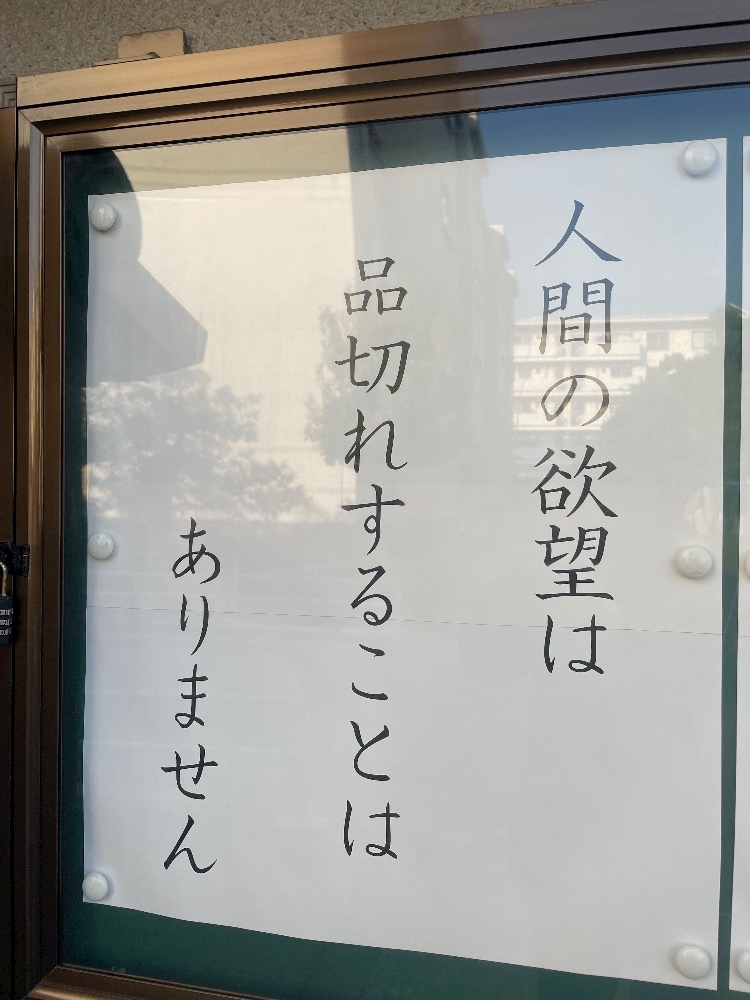 人間の欲望は
品切れすることは
ありません